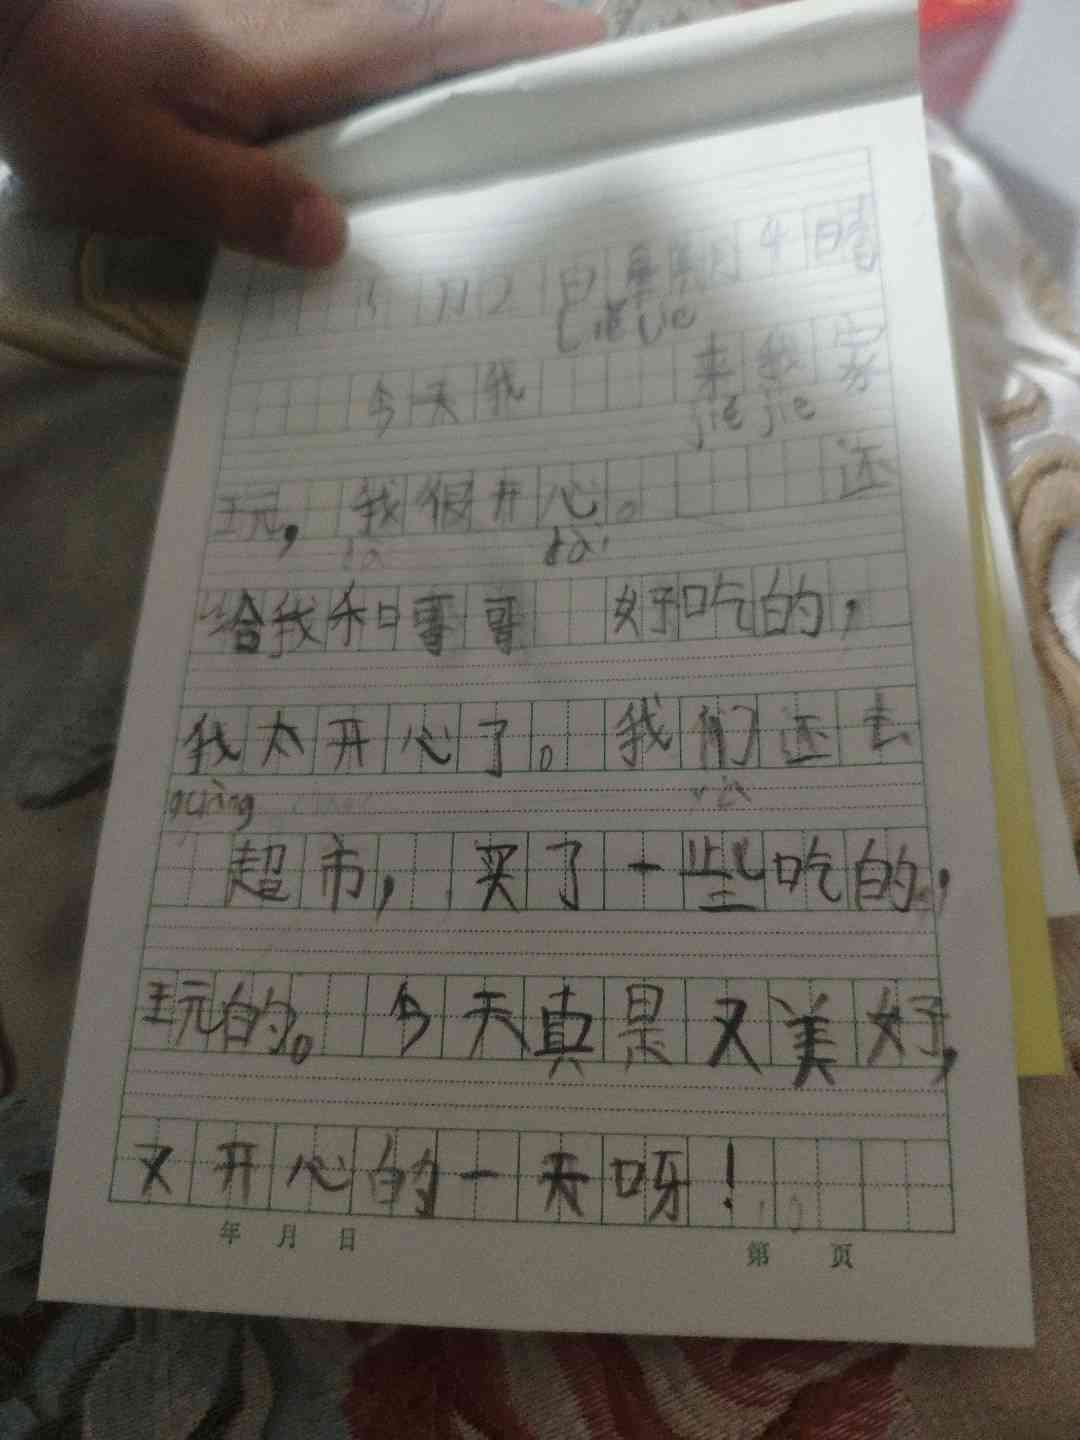 5月2日星期4晴
jiě jie
今天我 来我家
jiě jie
玩，我很开心。 还
dài
给我和哥哥 好吃的，
我太开心了。我们还去
guàng
超市，买了一些吃的，
玩的。今天真是又美好，
又开心的一天呀！
年 月 日 第 页